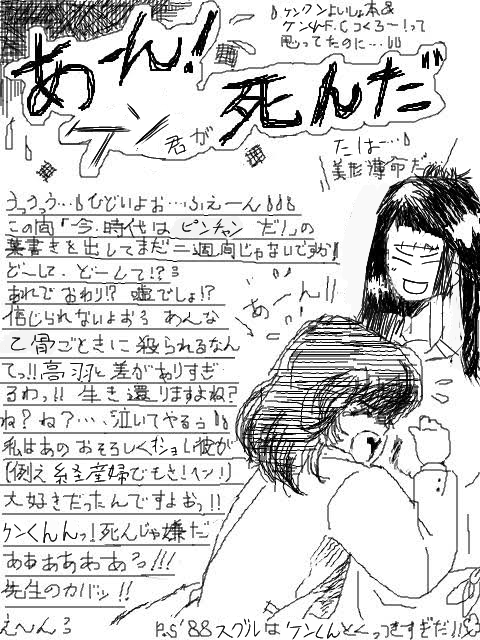 ケンクンよいしょ本&
ケンくんF.Cつくろ〜!って
思ってたのに…
あーん!
ケン君が死んだ
たはー…
美形薄命だ…
うっうっう…ひどいよお…ふえーん
この間「今、時代はピンチャンだ!」の
葉書きを出してまだ二週間じゃないですか!
どーして、どーして!?
あれでおわり!?嘘でしょ!?
信じられないよおぅあんな
乙骨ごときに殺られるなん
てっ!!高羽と差がありすぎ
るわっ!!生き還りますよね?
ね?ね?…、泣いてやるぅ
私はあのおそろしくオショい彼が
(例え経産婦でもさ!ヘン!)
大好きだったんですよおっ!!
ケンくんんっ!死んじゃ嫌だ
ああああああっ!!!
先生のカバッ!!
え〜ん
あーん!!
P.S'88スグルはケンくんとくっつきすぎだ!!